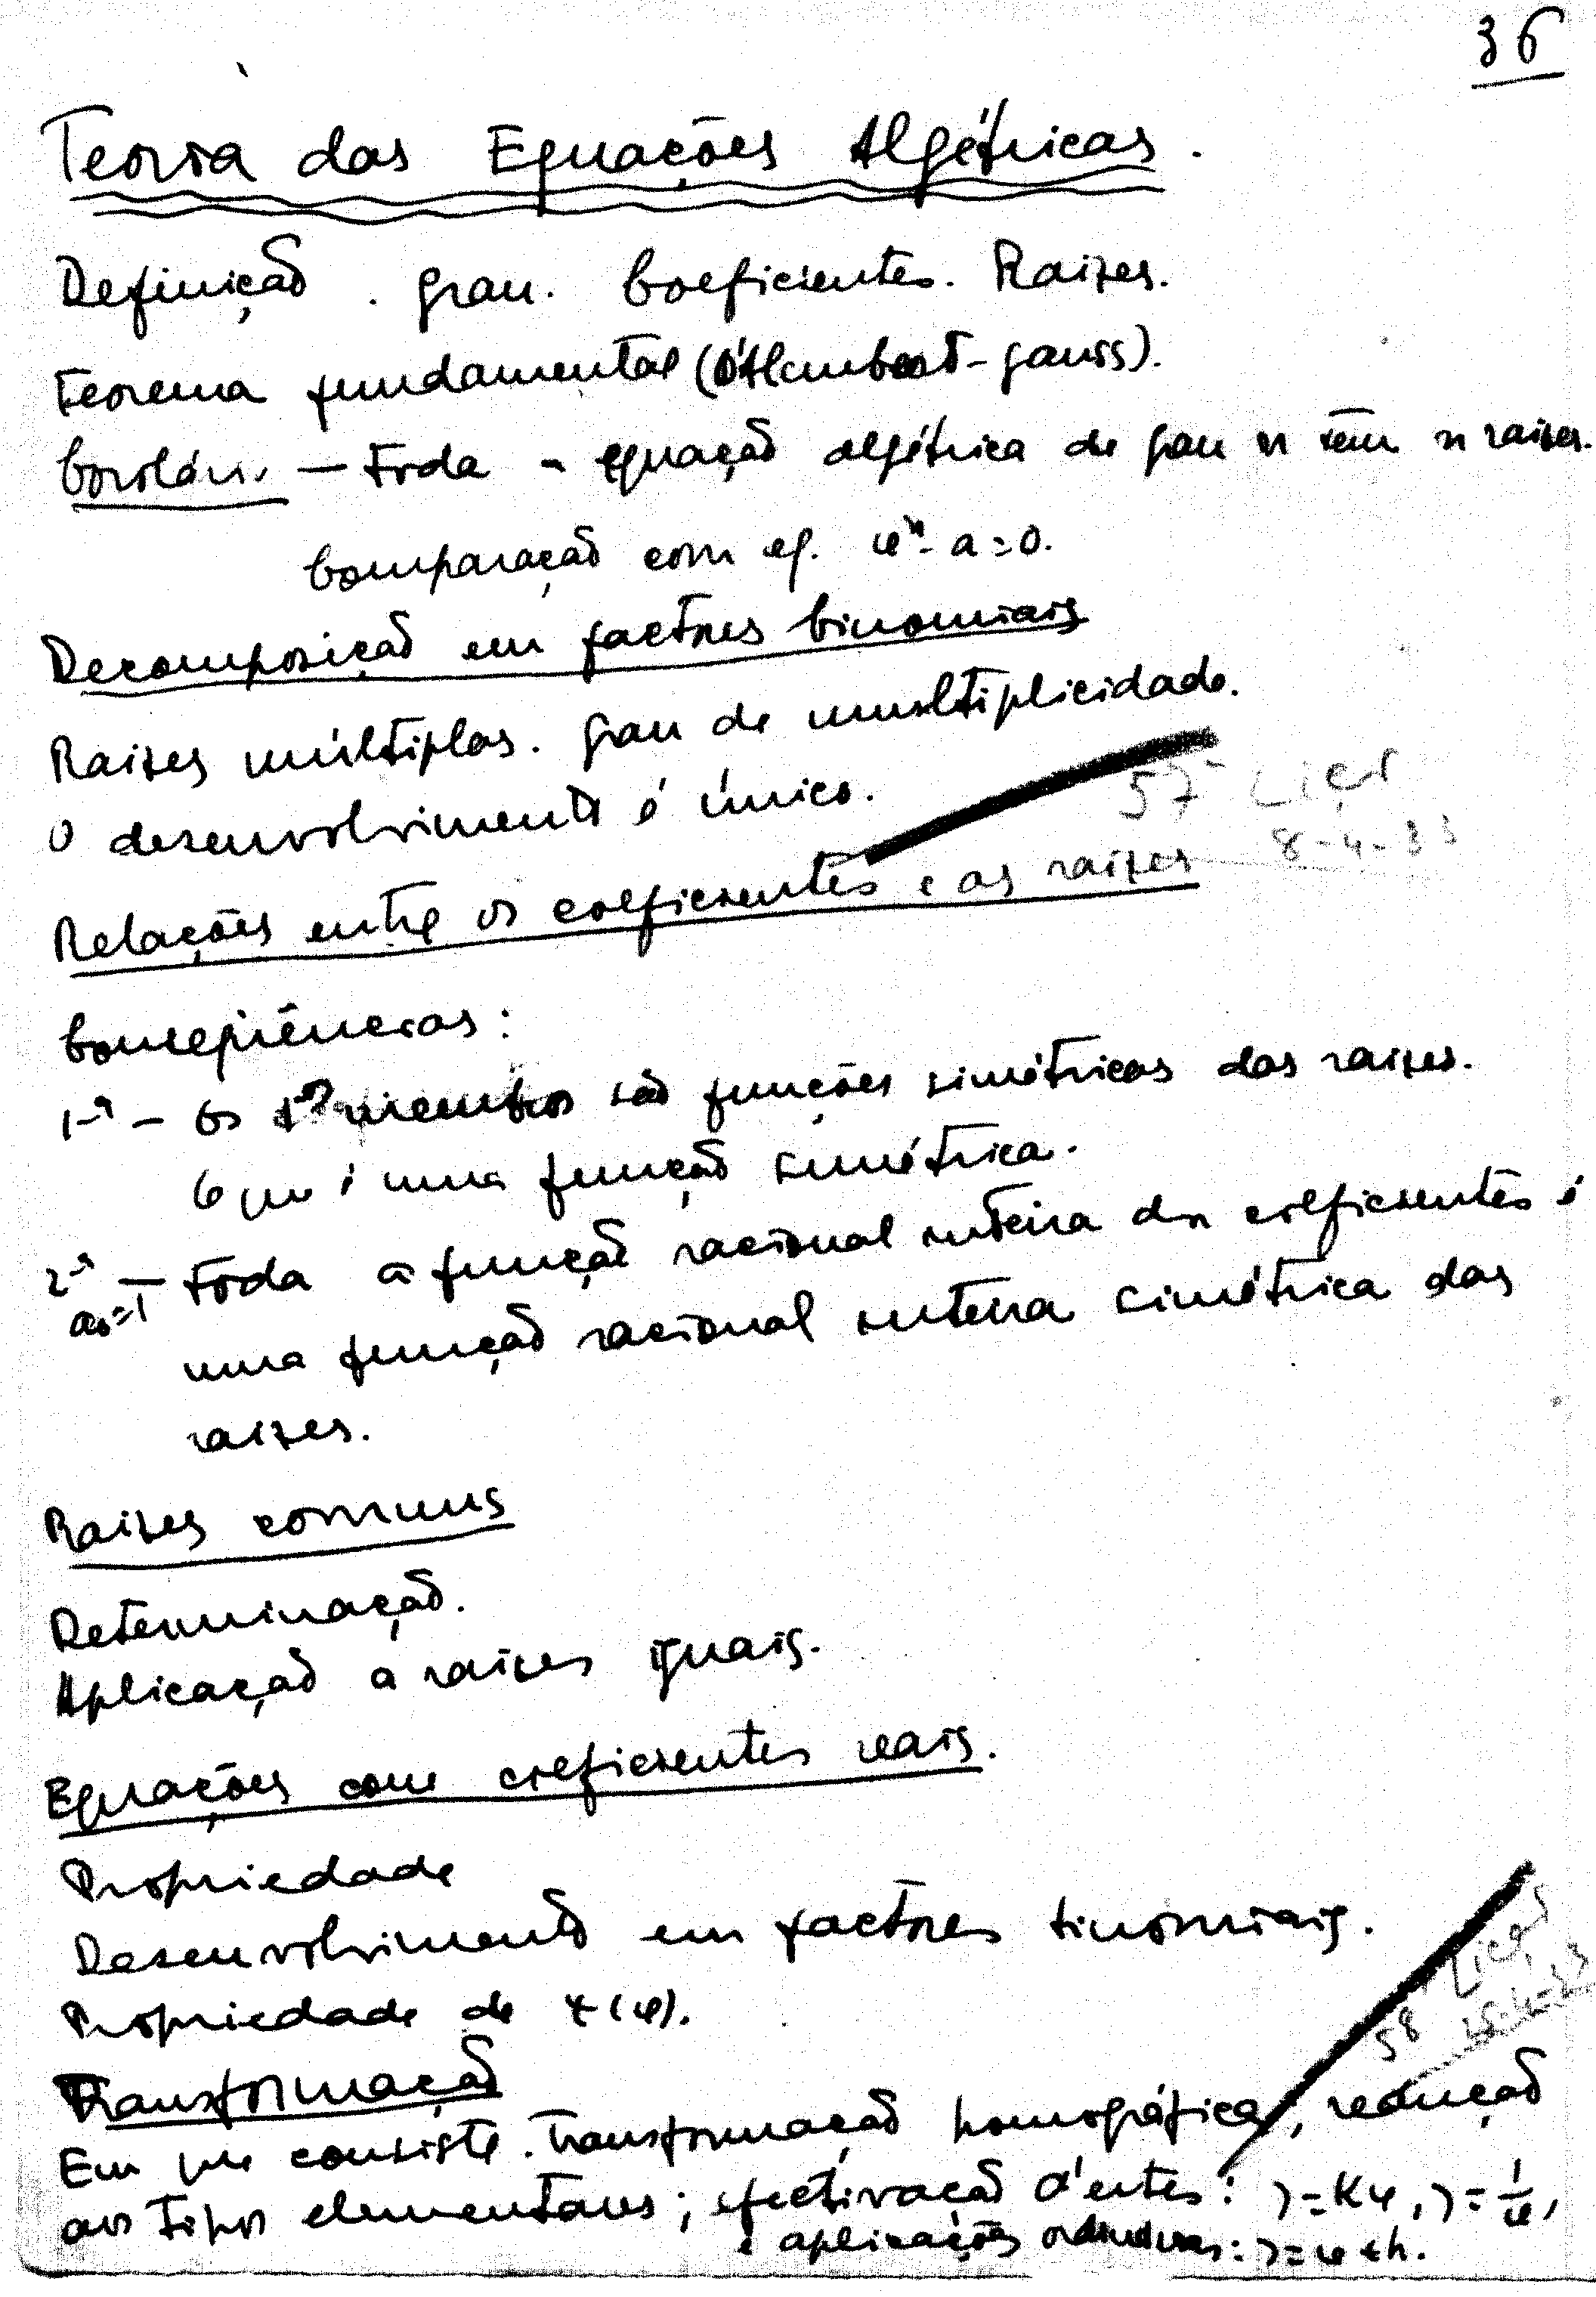 36
Teoria das Equações Algébricas.
Definição. Grau. Coeficientes. Raizes.
Teorema fundamental (D'Alembert-Gauss).
Corolário — Toda a equação algébrica de grau n tem n raizes.
Comparação com eq. xⁿ - a = 0.
Decomposição em factores binomiais
Raizes múltiplas. Grau de multiplicidade.
O desenvolvimento é único.
57ª Lição
8-4-33
Relações entre os coeficientes e as raizes
Consequências:
1ª — Os 1ᵒˢ membros são funções simétricas das raizes.
O que é uma função simétrica.
2ª — Toda a função racional inteira dos coeficientes é
a₀=1
uma função racional inteira simétrica das
raizes.
Raizes comuns
Determinação.
Aplicação a raizes iguais.
Equações com coeficientes reais.
Propriedade
Desenvolvimento em factores binomiais.
Propriedade de f(x).
58ª Lição
Transformação
Em que consiste. Transformação homográfica, redução
aos tipos elementares; efectivação d'estes: y=Kx, y=1/x,
y=x+h.
e aplicações